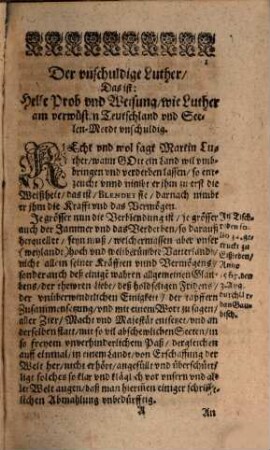 Der vnschuldige Luther/
Das ist:
Helle Prob vnd Weisung/ wie Luther
am verwüst.n Teutschland vnd See-
len-Mordt vnschuldig.
REcht vnd wol sagt Martin Lu-
ther/ wann GOtt ein Land wil vmb-
bringen vnd verderben lassen/ so ent-
zeucht vnnd nimbt er jhm zu erst die
Weißheit/ das ist/ BLENDET sie/ darnach nimbt
er jhm die Krafft vnd das Vermögen.
Je grösser nun die Verblendung ist/ je grösser
auch der Jammer vnd das Verderben/ so darauß
herquellet/ seyn muß/ welchermassen aber vnser
weyland hoch vnd weitberühmbte Vatterlandt/
nicht allein seiner Kräfften vnnd Vermögens/
sonder auch deß einigē wahren allgemeinen Glau-
bens/ der thewren liebe/ deß holdseligen Fridens/
der vnüberwindtlichen Einigkeit/ der tapffern
Zusammensetzung/ vnd mit einem Wort zu sagen/
aller Zier/ Macht vnd Majestät entsetzet/ vnd an
derselben statt/ mit so vil abschewlichen Secten/ in
so freyem vnverhinderlichem Paß/ dergleichen
auff einmal/ in einem Lande/ von Erschaffung der
Welt her/ nicht erhört/ angefüllt vnd überschütt/
ligt solches so klar vnd kläglich vor vnsern vnd al-
ler Welt augen/ daß man hierinen einiger schrifft-
lichen Abmahlung vnbedürfftig.
An Tisch-
reden
truckt zu
Eißleben/
Anno
durch
A
An